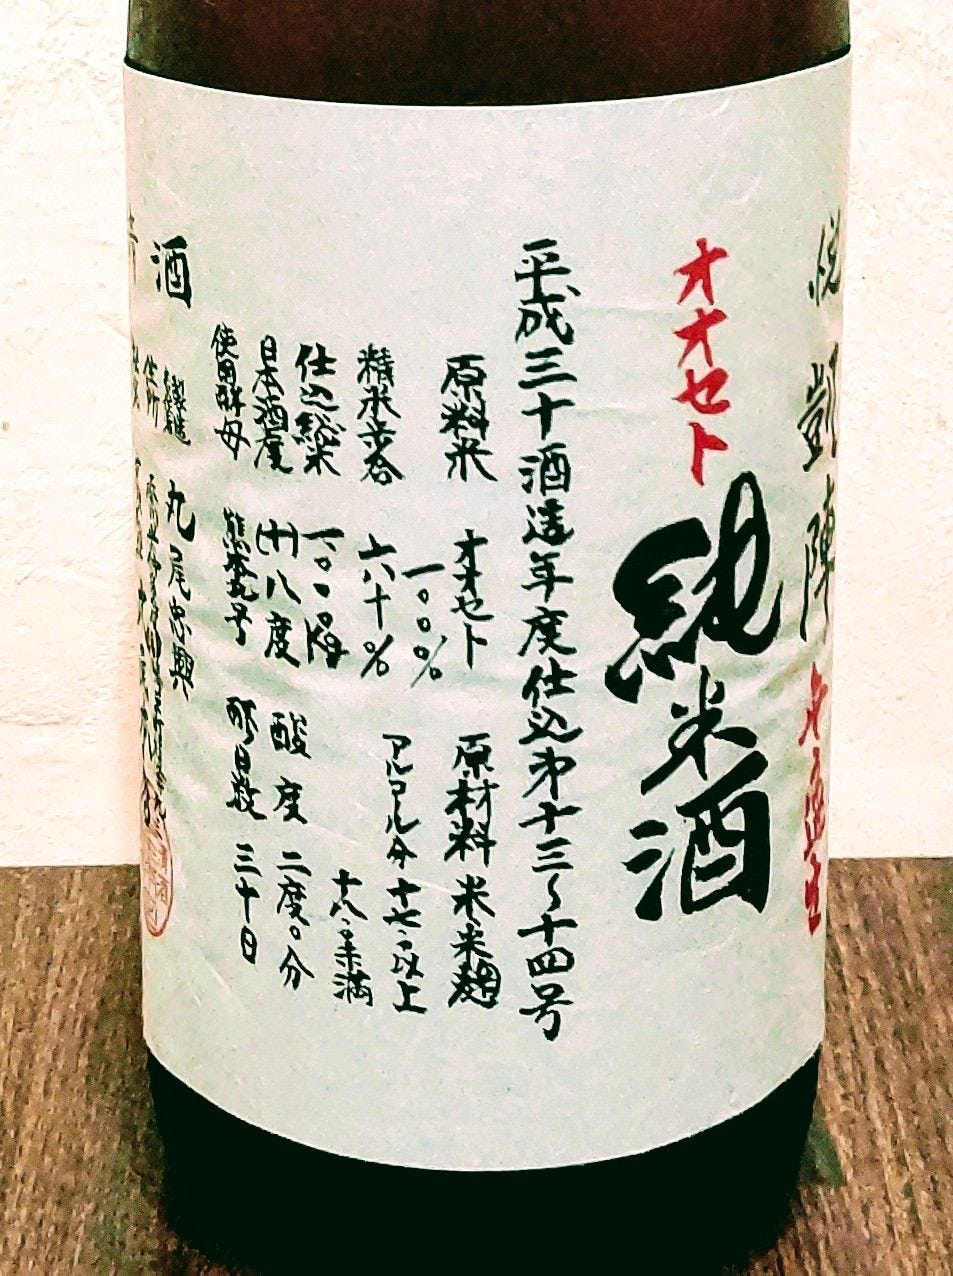 悦凱陣
オオセト
純米酒
平成三十酒造年度仕込第十三〜十四号
原料米 オオセト 一〇〇%
原材料 米・米麹
精米歩合 六十%
アルコール分 十七・〇以上
十八・〇未満
仕込総米
日本酒度 (十)八度
酸度 二度〇分
使用酵母 熊本九号
醪日数 三十日
酒
製造 丸尾忠興